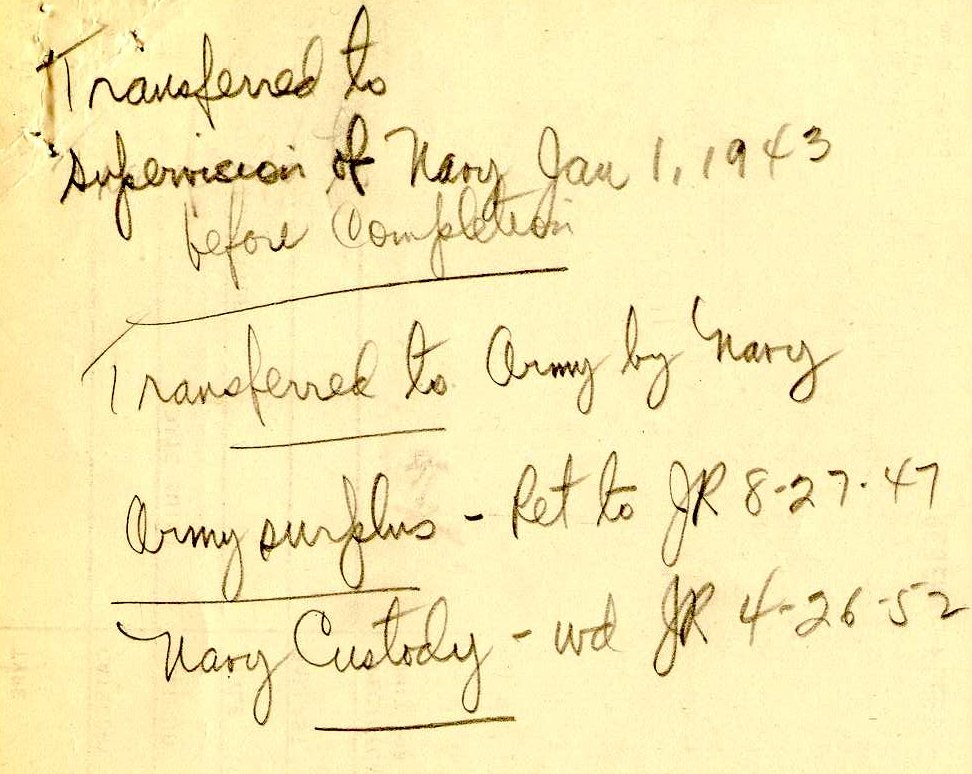 Transferred to
supervision of Navy Jan 1, 1943
before Completion
Transferred to Army by Navy
Army surplus - Ret to JR 8-27-47
Navy Custody - wd JR 4-26-52